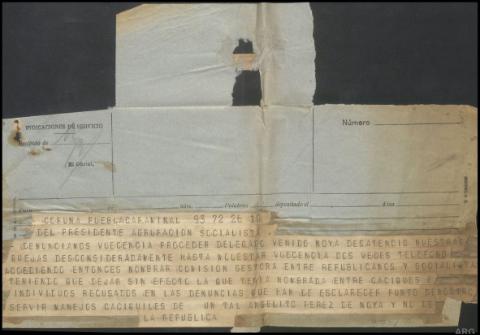 INDICACIONES DE SERVICIO
Recibido de
El Oficial,
Número
núm. Palabras depositado el á las
CORUNA PUEBLACARAMINAL 93 72 26 10
DEL PRESIDENTE AGRUPACION SOCIALISTA
DENUNCIAMOS VUECENCIA PROCEDER DELEGADO VENIDO NOYA DESATENDIO NUESTRAS
QUEJAS DESCONSIDERADAMENTE HASTA MOLESTAR VUECENCIA DOS VECES TELEFONO
ACCEDIENDO ENTONCES NOMBRAR COMISION GESTORA ENTRE REPUBLICANOS Y SOCIALISTAS
TENIENDO QUE DEJAR SIN EFECTO LA QUE TENIA NOMBRADA ENTRE CACIQUES E
INDIVIDUOS RECUSADOS EN LAS DENUNCIAS QUE HAN DE ESCLARECER PUNTO DEMOSTRO
SERVIR MANEJOS CACIQUILES DE UN TAL ANGELITO PEREZ DE NOYA Y NO DE
LA REPUBLICA
ARG